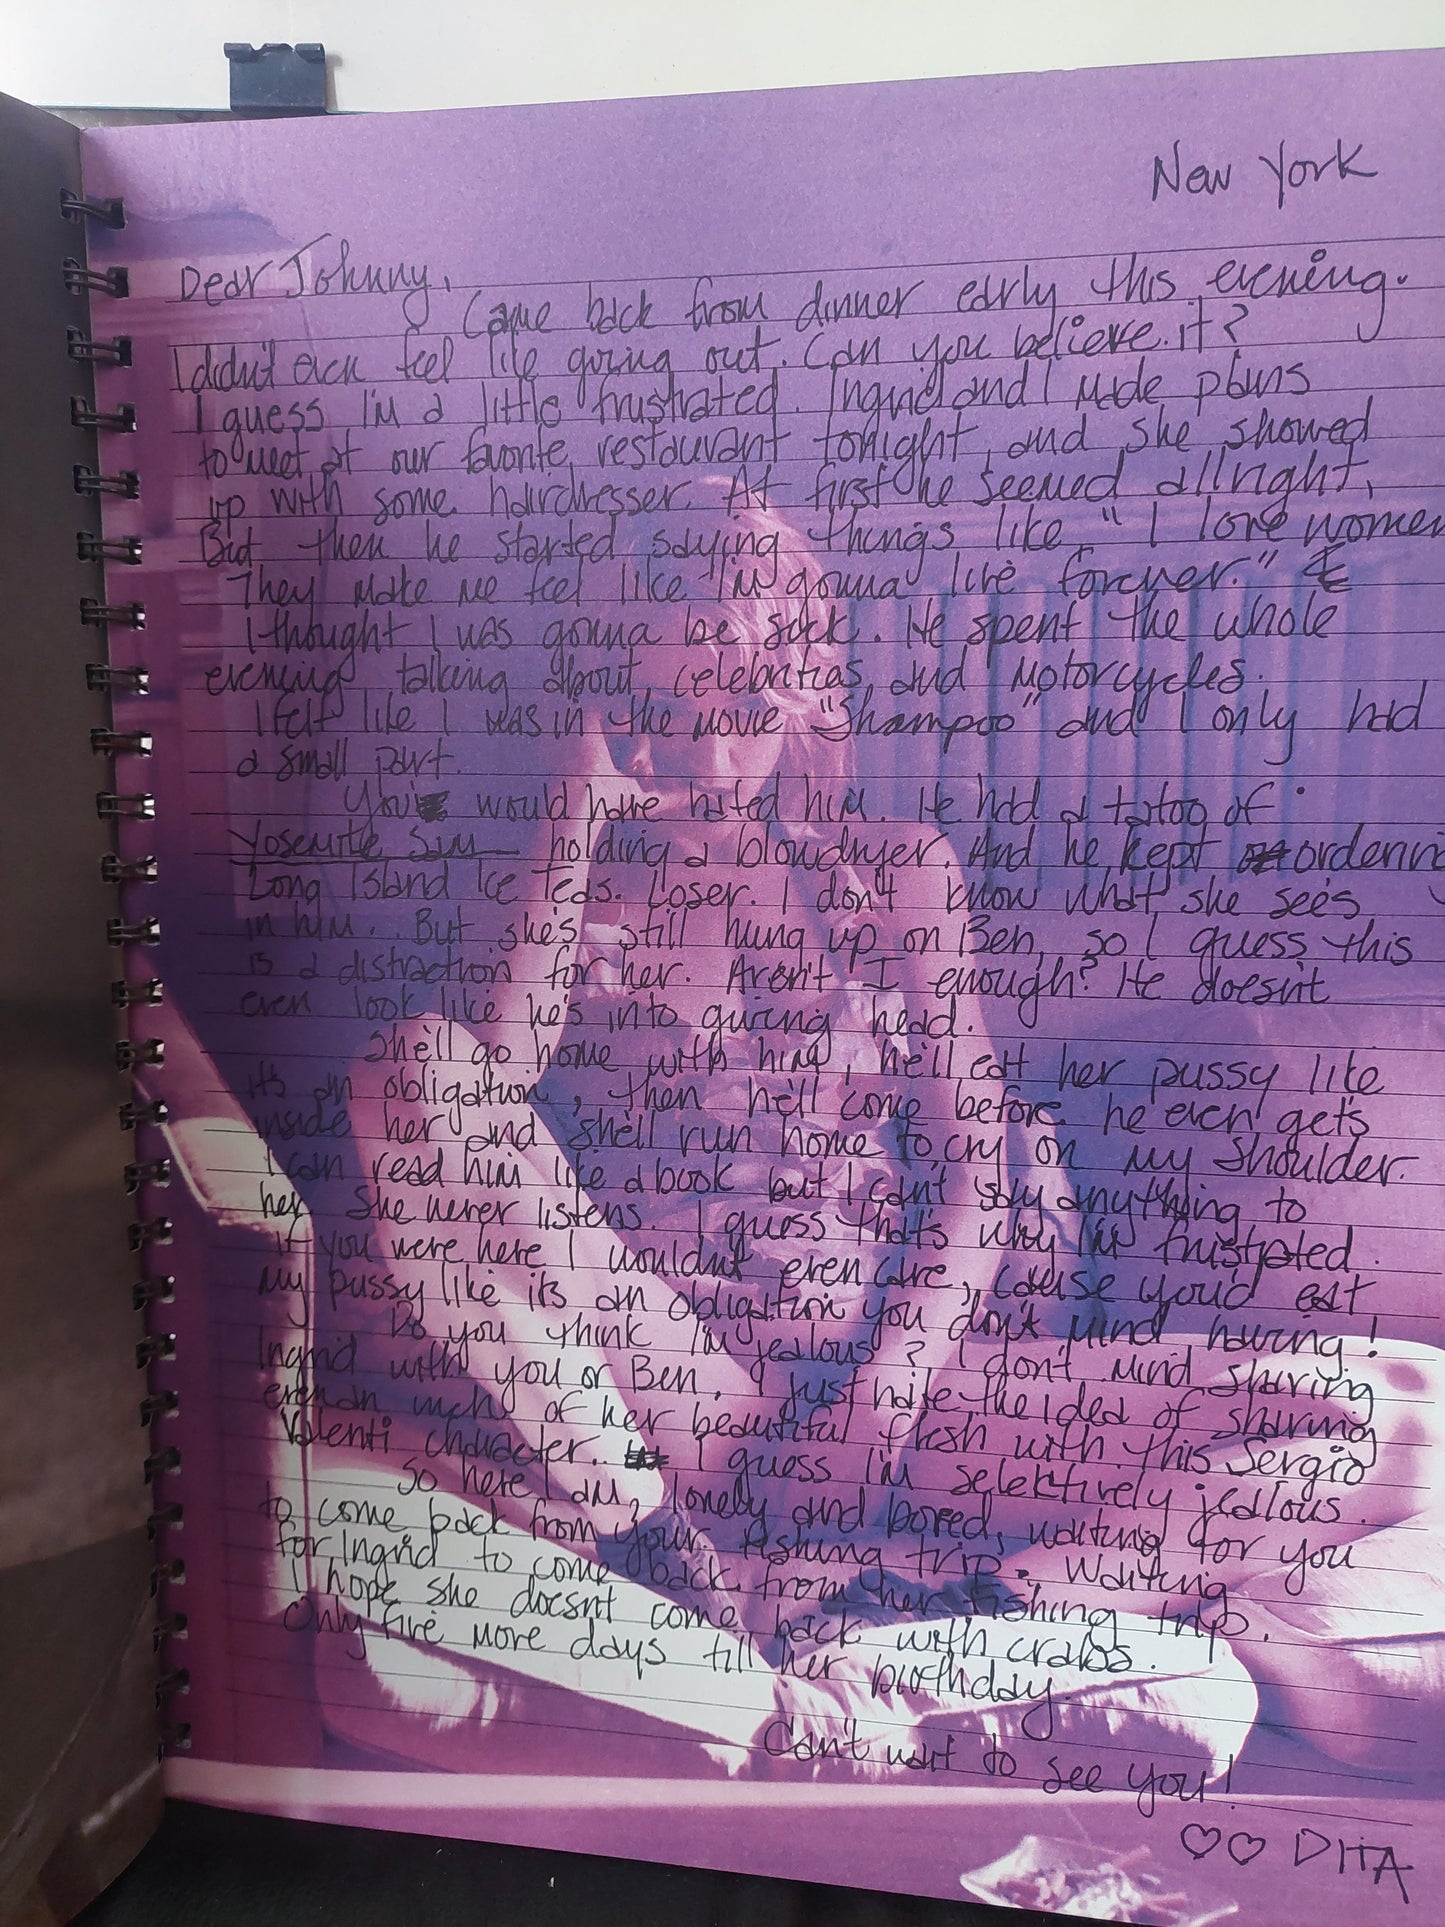 New York
Dear Johnny,
Came back from dinner early this evening.
I didn't even feel like going out. Can you believe it?
I guess I'm a little frustrated. Ingrid and I made plans
to meet at our favorite restaurant tonight, and she showed
up with some hairdresser. At first he seemed allright,
But then he started saying things like, "I love women
They make me feel like I'm gonna live forever."
I thought I was gonna be sick. He spent the whole
evening talking about celebrities and motorcycles.
I felt like I was in the movie "Shampoo" and I only had
a small part.
You would have hated him. He had a tatoo of
Yosemite Sam holding a blowdryer. And he kept ordering
Long Island Ice Teas. Loser. I don't know what she sees
in him. But she's still hung up on Ben, so I guess this
is a distraction for her. Aren't I enough? He doesn't
even look like he's into giving head.
She'll go home with him, he'll eat her pussy like
it's an obligation, then he'll come before he even gets
inside her and she'll run home to cry on my shoulder.
I can read him like a book but I can't say anything to
her. She never listens. I guess that's why I'm frustrated.
If you were here I wouldn't even care, cause you'd eat
my pussy like it's an obligation you don't mind having!
Do you think I'm jealous? I don't mind sharing
Ingrid with you or Ben, I just hate the idea of sharing
even an inch of her beautiful flesh with this Sergio
Valenti character. I guess I'm selektively jealous.
So here I am, lonely and bored, waiting for you
to come back from your fishing trip. Waiting
for Ingrid to come back from her fishing trip.
I hope she doesn't come back with crabs.
Only five more days till her birthday.
Can't wait to see you!
♡♡ DITA